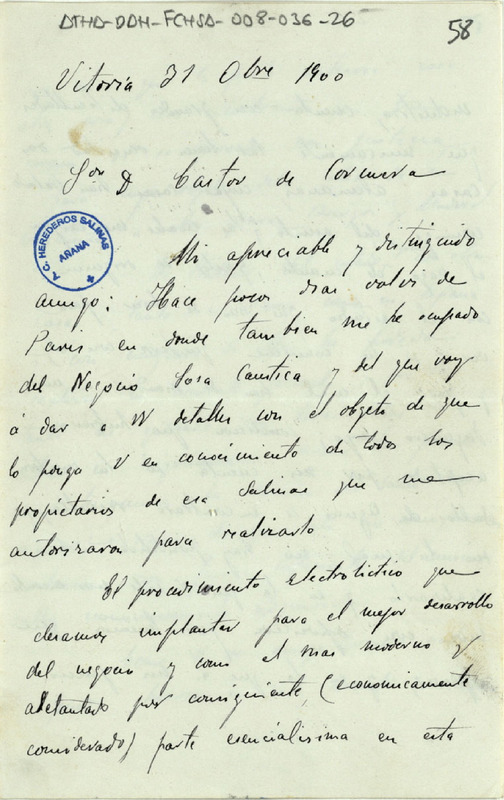 ATHA-DAH-FCHSA-008-036-26
58
Vitoria 31 Obre 1900
Sor D Castor de Corcuera
A.C. HEREDEROS SALINAS
ARANA
Mi apreciable y distinguido
amigo: Hace pocos dias volvi de
Paris en donde tambien me he ocupado
del Negocio Sosa Caustica y del que voy
á dar a VV detalles con el objeto de que
lo ponga V en conocimiento de todos los
propietarios de esa Salinas que me
autorizaron para realizarlo
El procedimiento electrolitico que
deseamos implantar para el mejor desarrollo
del negocio y como el mas moderno y
adelantado por consiguiente, (economicamente
considerado) parte esencialisima en esta